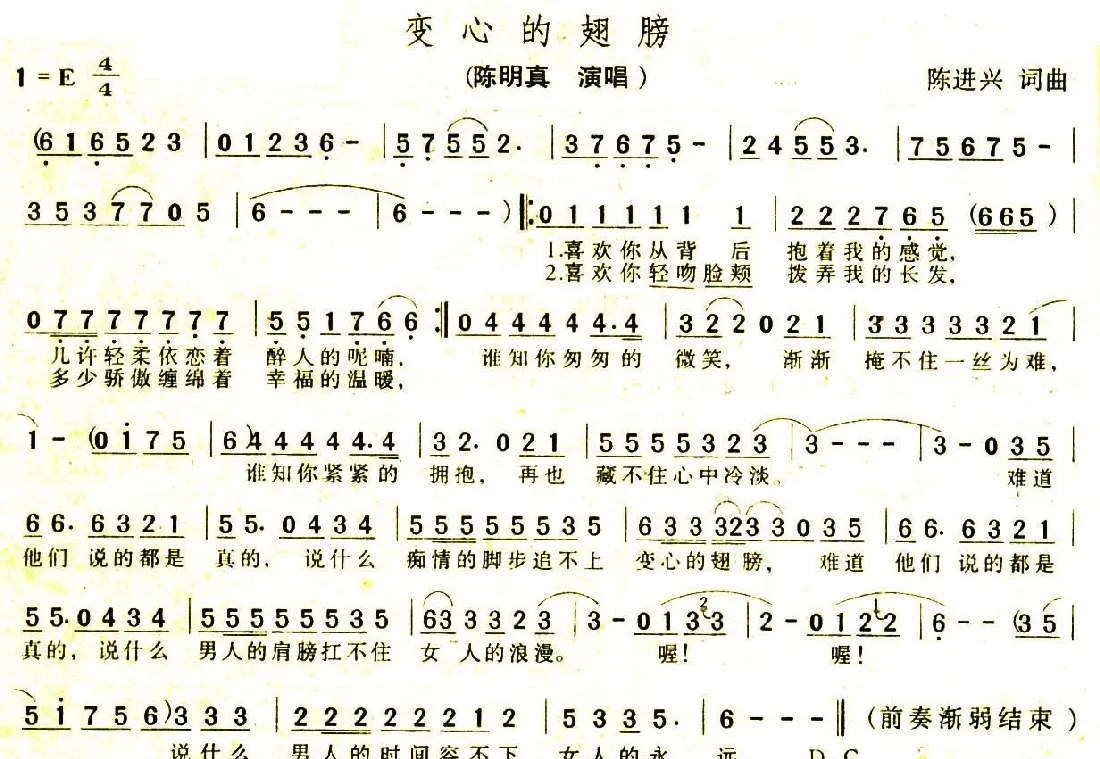 变心的翅膀
(陈明真 演唱)
1=E 4/4 陈进兴 词曲
(616523 | 01236- | 57552. | 37675- | 24553. | 75675- |
3537705 | 6--- | 6--- ) ‖: 011111 1 | 222765 (665) |
1.喜欢你从背后 抱着我的感觉,
2.喜欢你轻吻脸颊 拨弄我的长发,
07777777 | 551766 :‖ 044444.4 | 322021 | 33333321 |
几许轻柔依恋着 醉人的呢喃, 谁知你匆匆的 微笑, 渐渐 掩不住一丝为难,
多少骄傲缠绵着 幸福的温暖,
1- (0175 | 6)44444.4 | 32.021 | 5555323 | 3--- | 3-035 |
谁知你紧紧的 拥抱, 再也 藏不住心中冷淡。 难道
66.6321 | 55.0434 | 55555535 | 6333233035 | 66.6321 |
他们 说的都是 真的, 说什么 痴情的脚步追不上 变心的翅膀, 难道 他们 说的都是
55.0434 | 55555535 | 633323 | 3-0133 | 2-0122 | 6-- (35 |
真的, 说什么 男人的肩膀扛不住 女人的浪漫。 喔! 喔!
51756)333 | 22222212 | 5335. | 6--- ‖ (前奏渐弱结束)
说什么 男人的时间容不下 女人的永 远 D.C